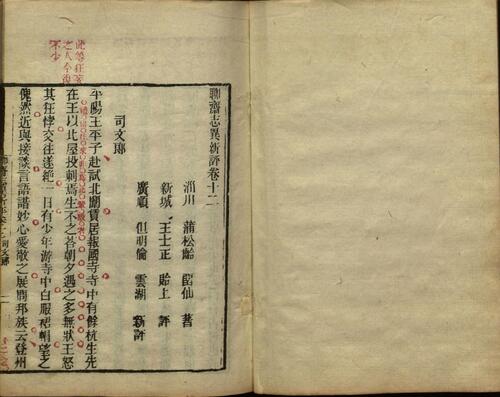 聊齋志異新評卷十二
淄川 蒲松齡 留仙 著
新城 王士正 貽上 評
廣順 但明倫 雲湖 新評
司文郎
平陽王平子赴試北闈賃居報國寺寺中有餘杭生先
在王以比屋投刺焉生不之答朝夕遇之多無狀王怒
其狂悖交往遂絕一日有少年游寺中白服裙帽望之
傀然近與接談言語諧妙心愛敬之展問邦族云登州
此等狂妄
之人今復
不少